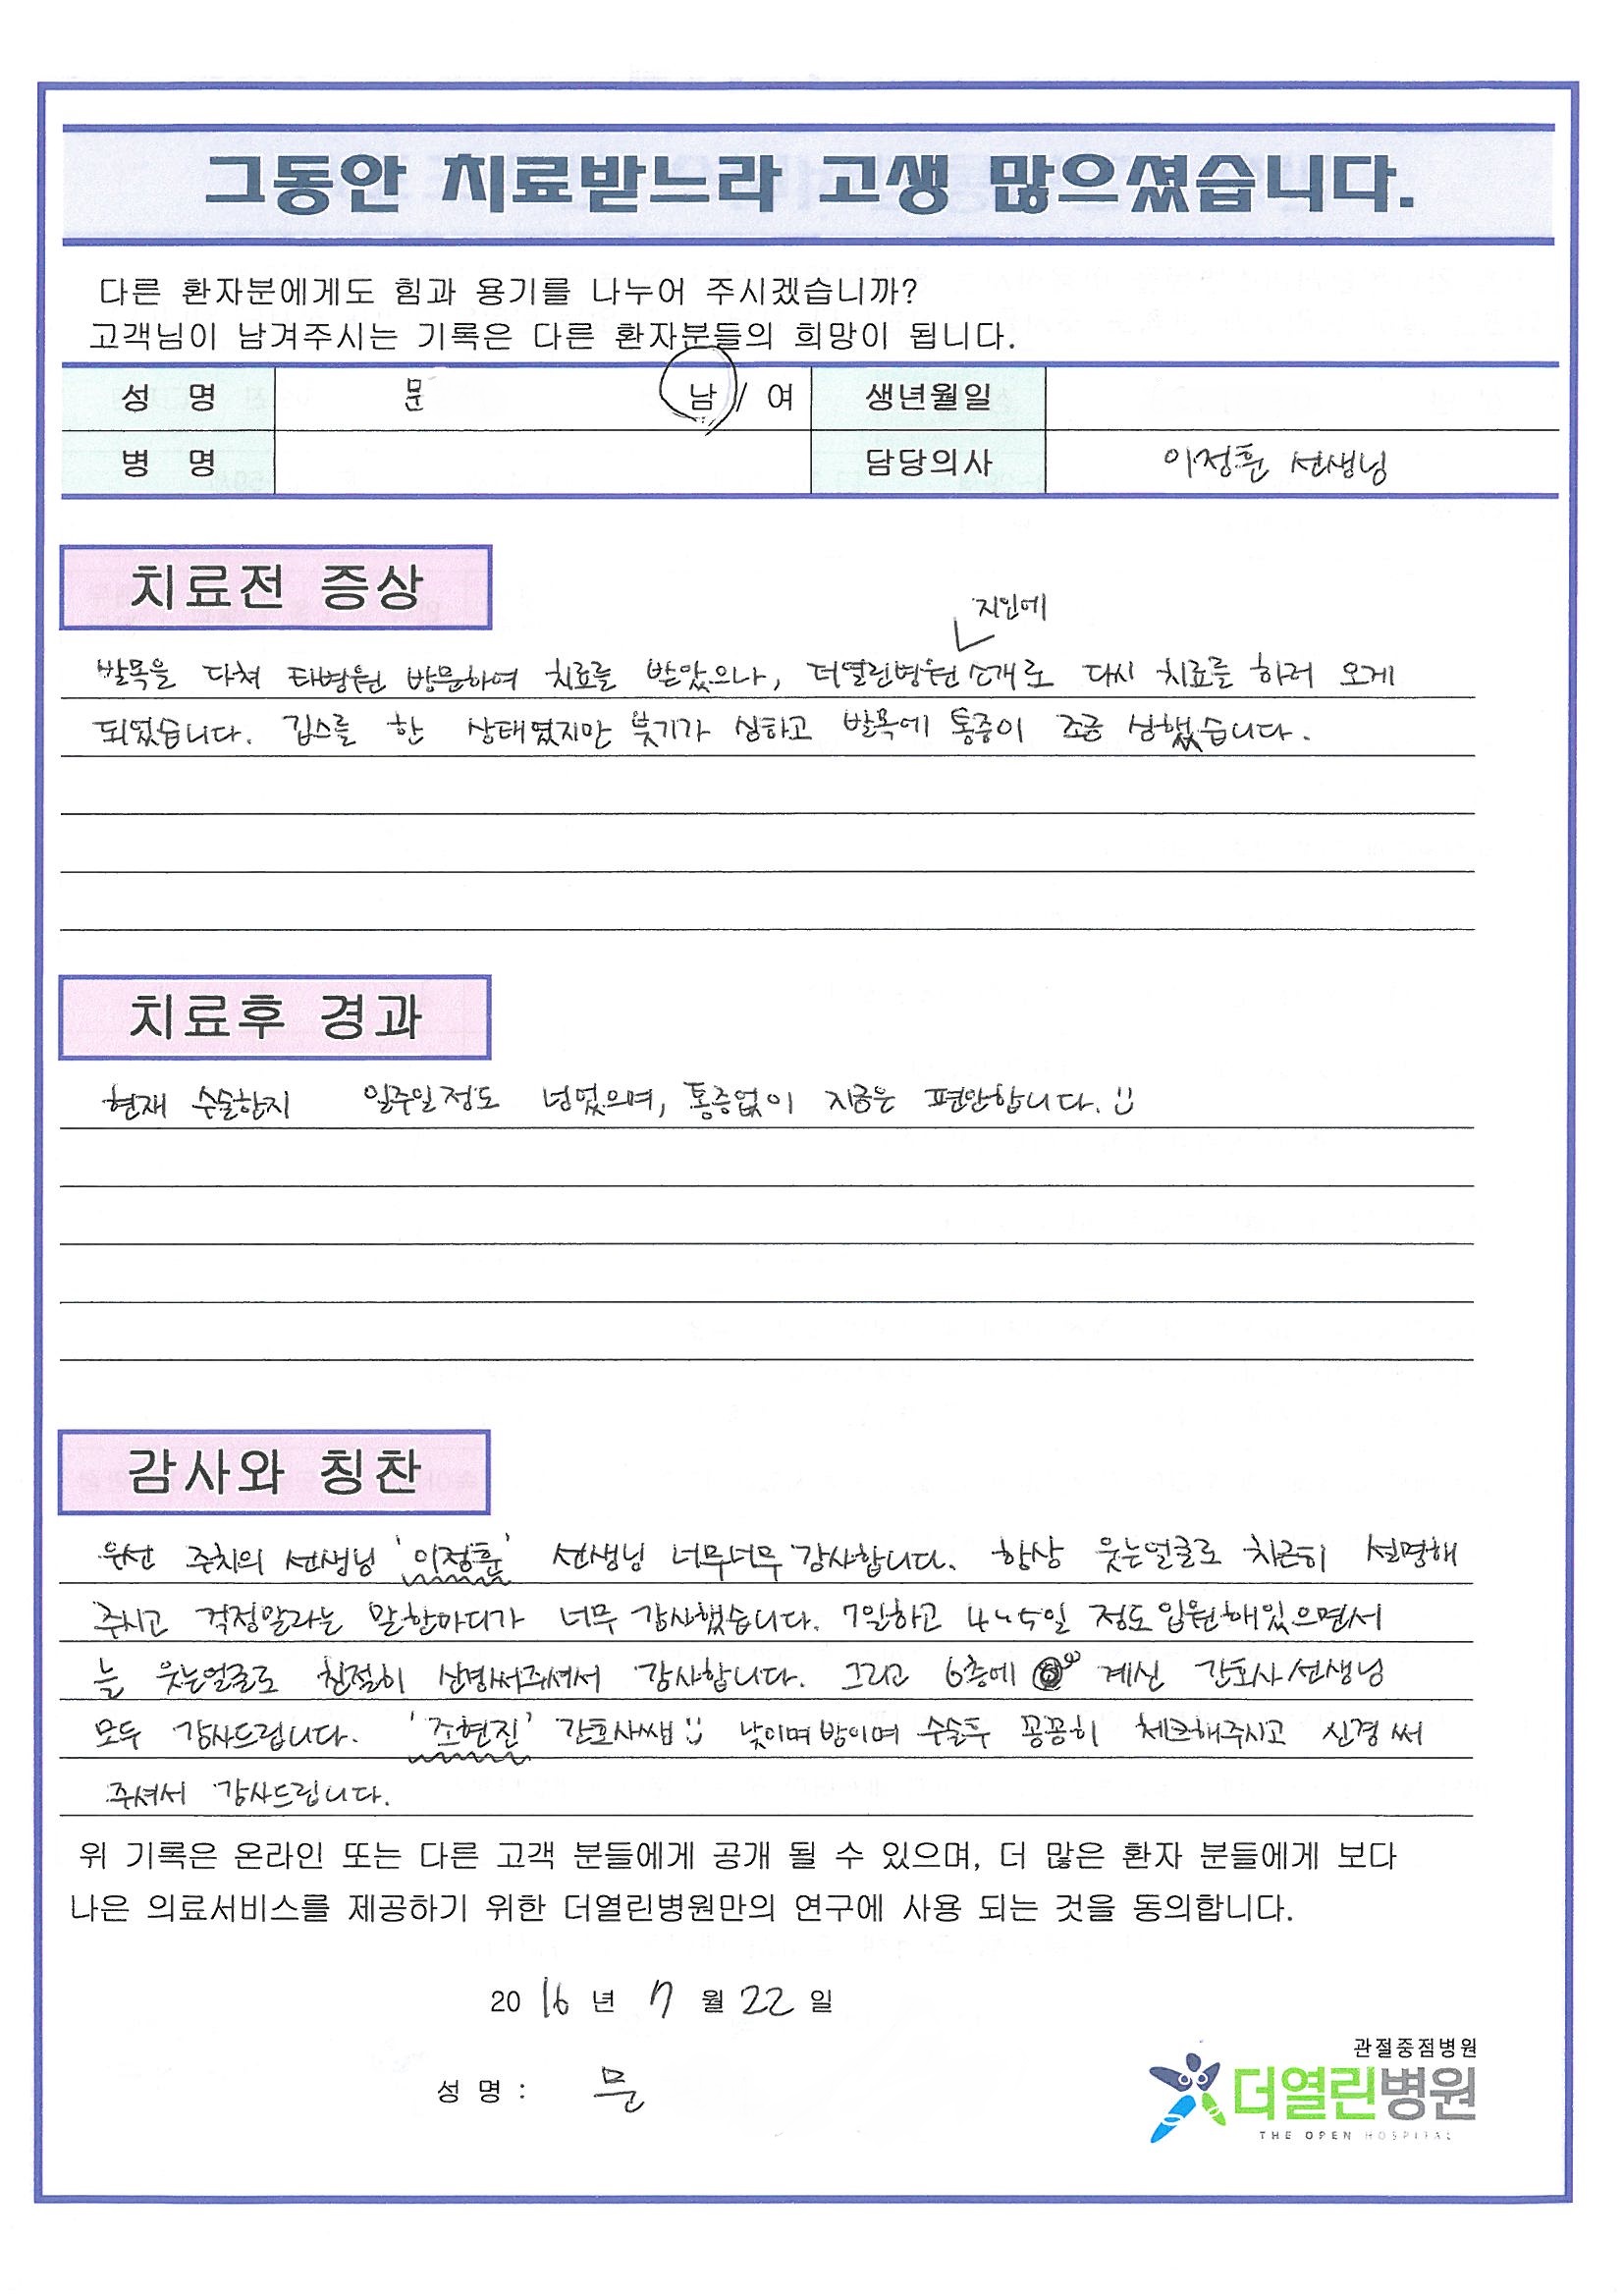 그동안 치료받느라 고생 많으셨습니다.
다른 환자분에게도 힘과 용기를 나누어 주시겠습니까?
고객님이 남겨주시는 기록은 다른 환자분들의 희망이 됩니다.
성 명 문 남 / 여 생년월일
병 명 담당의사 이정훈 선생님
치료전 증상
지인에
발목을 다쳐 타병원 방문하여 치료를 받았으나, 더열린병원 소개로 다시 치료를 하러 오게
되었습니다. 깁스를 한 상태였지만 붓기가 심하고 발목에 통증이 조금 심했습니다.
치료후 경과
현재 수술한지 일주일정도 넘었으며, 통증없이 지금은 편안합니다.
감사와 칭찬
우선 주치의 선생님 '이정훈' 선생님 너무너무 감사합니다. 항상 웃는얼굴로 차근히 설명해
주시고 걱정말라는 말한마디가 너무 감사했습니다. 7일하고 4~5일 정도 입원해있으면서
늘 웃는얼굴로 친절히 신경써주셔서 감사합니다. 그리고 6층에 계신 간호사선생님
모두 감사드립니다. '조현진' 간호사쌤 낮이며 밤이며 수술후 꼼꼼히 체크해주시고 신경써
주셔서 감사드립니다.
위 기록은 온라인 또는 다른 고객 분들에게 공개 될 수 있으며, 더 많은 환자 분들에게 보다
나은 의료서비스를 제공하기 위한 더열린병원만의 연구에 사용 되는 것을 동의합니다.
2016 년 7 월 22 일
성 명 : 문
관절중점병원
더열린병원
THE OPEN HOSPITAL